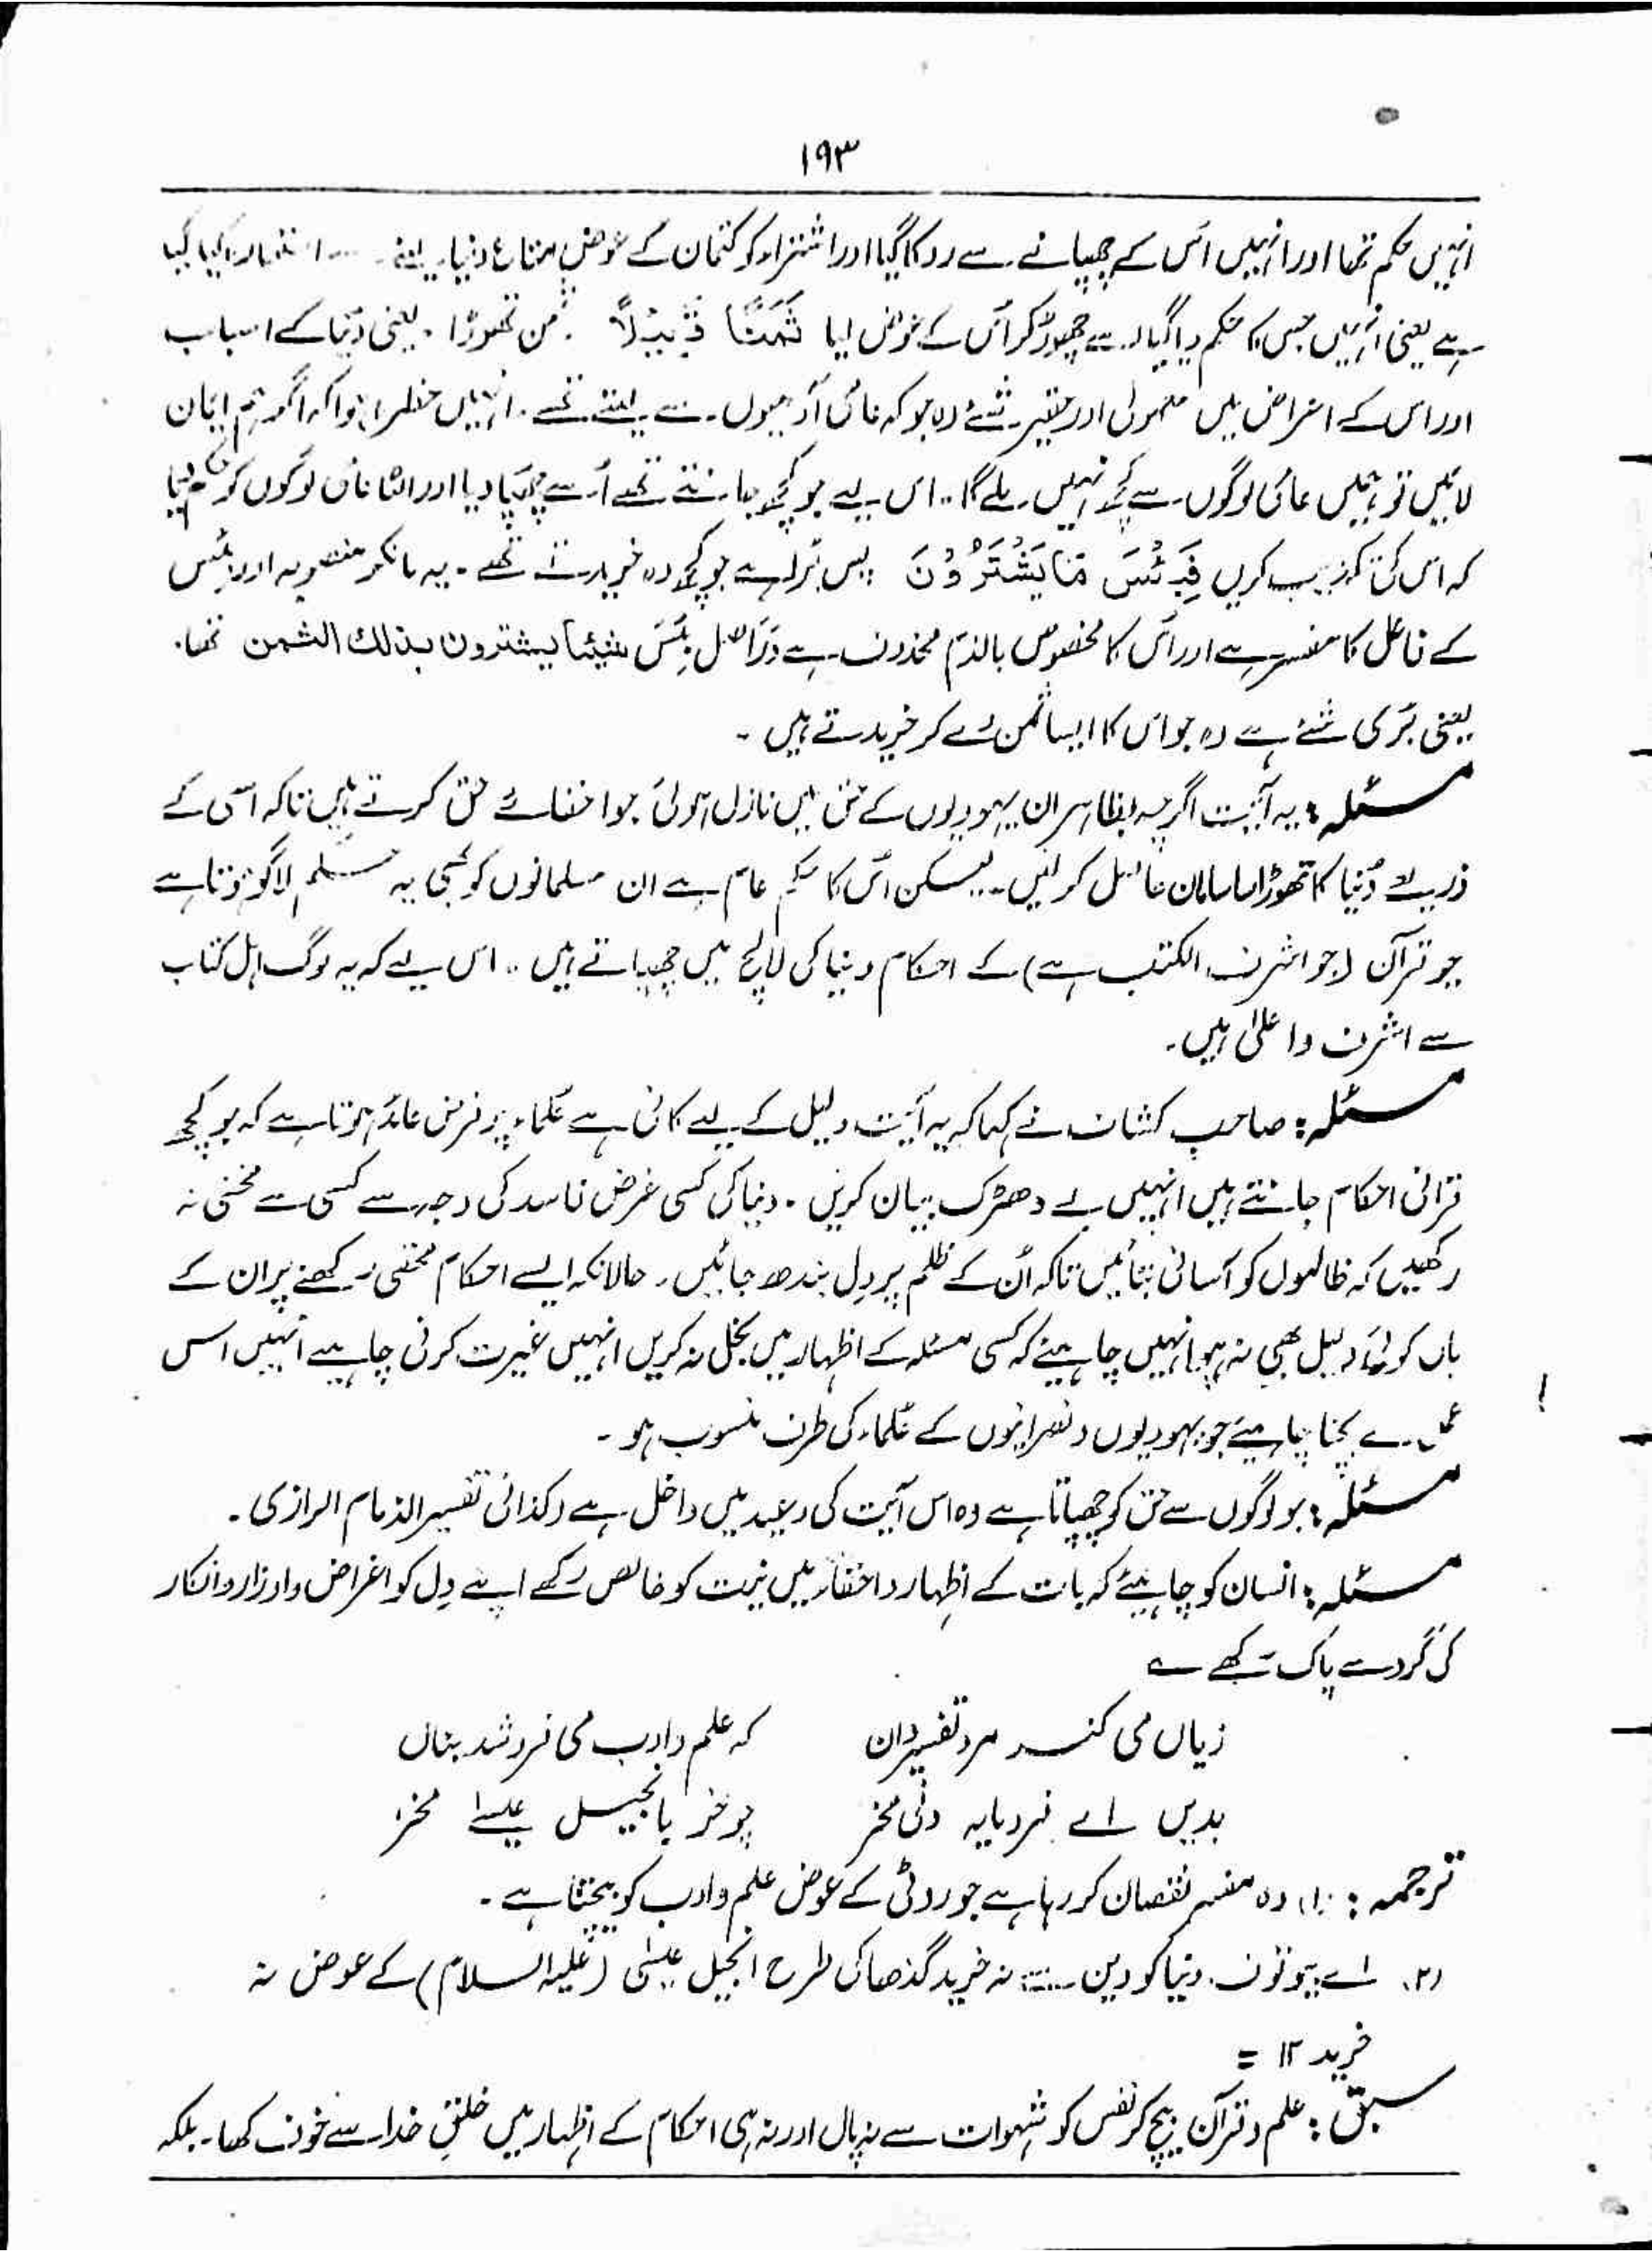 ۱۹۳
انہیں حکم تھا اور انہیں اس کے چھپانے سے روکا گیا اور اشتراء کو کتمان کے عوض متاع دنیا لینے استعارہ کیا گیا
ہے یعنی انہیں جس کا حکم دیا گیا اسے چھوڑ کر اس کے عوض لیا ثَمَنًا قَلِیْلًا ثمن تھوڑا ۔ یعنی دنیا کے اسباب
اور اس کے اغراض میں معمولی اور حقیر شئے وہ جو کہ عامی آدمیوں سے لیتے تھے ۔ انہیں خطرہ ہوا کہ اگر ہم ایمان
لائیں تو ہمیں عامی لوگوں سے کچھ نہیں ملے گا ۔ اس لیے جو کچھ جانتے تھے اُسے چھپا دیا اور الٹا عام لوگوں کو حکم دیا
کہ اس کی تکذیب کریں فَبِئْسَ مَا یَشْتَرُوْنَ پس بُرا ہے جو کچھ وہ خریدتے تھے ۔ یہ ما نکرہ منصوبہ اور بئس
کے فاعل کا مفسر ہے اور اس کا مخصوص بالذم محذوف ہے دراصل بِئْسَ شیئا یشترون بذلك الثمن تھا ۔
یعنی بُری شئے ہے وہ جو اس کا ایسا ثمن دے کر خریدتے ہیں ۔
مسئلہ : یہ آیت اگرچہ بظاہر ان یہودیوں کے حق میں نازل ہوئی جو اخفائے حق کرتے ہیں تاکہ اسی کے
ذریعے دُنیا کا تھوڑا سا سامان حاصل کر لیں ۔ لیکن اس کا حکم عام ہے ان مسلمانوں کو بھی یہ حکم لاگو ہوتا ہے
جو قرآن (جو اشرف الکتب ہے) کے احکام دنیا کی لالچ میں چھپاتے ہیں ۔ اس لیے کہ یہ لوگ اہل کتاب
سے اشرف و اعلیٰ ہیں ۔
مسئلہ : صاحبِ کشاف نے کہا کہ یہ آیت دلیل کے لیے کافی ہے علماء پر فرض عائد ہوتا ہے کہ جو کچھ
قرآنی احکام جانتے ہیں انہیں بے دھڑک بیان کریں ۔ دنیا کی کسی غرض فاسد کی وجہ سے کسی سے مخفی نہ
رکھیں کہ ظالموں کو آسانی بتائیں تاکہ اُن کے ظلم پر دل بندھ جائیں ۔ حالانکہ ایسے احکام مخفی رکھنے پر ان کے
ہاں کوئی دلیل بھی نہ ہو انہیں چاہیئے کہ کسی مسئلہ کے اظہار میں بخل نہ کریں انہیں غیرت کرنی چاہیے انہیں اس
عمل سے بچنا چاہیئے جو یہودیوں و نصرانیوں کے علماء کی طرف منسوب ہو ۔
مسئلہ : جو لوگوں سے حق کو چھپاتا ہے وہ اس آیت کی وعید میں داخل ہے (کذا فی تفسیر الامام الرازی ۔
مسئلہ : انسان کو چاہیئے کہ بات کے اظہار و اخفاء میں نیت کو خالص رکھے اپنے دل کو اغراض و اوزار و انکار
کی گرد سے پاک رکھے ؎
زیاں می کند مرد تفسیردان کہ علم و ادب می فروشد بناں
بدیں اے فرومایہ دنی مخر چو خر بانجیل عیسٰے مخر
ترجمہ : (۱) وہ مفسر نقصان کر رہا ہے جو روٹی کے عوض علم و ادب کو بیچتا ہے ۔
(۲) اے بیوقوف دنیا کو دین نہ خرید گدھا کی طرح انجیل عیسٰی (علیہ السلام) کے عوض نہ
خرید ۱۲ =
سبق : علم و قرآن بیچ کر نفس کو شہوات سے نہ پال اور نہ ہی احکام کے اظہار میں خلقِ خدا سے خوف کھا ۔ بلکہ